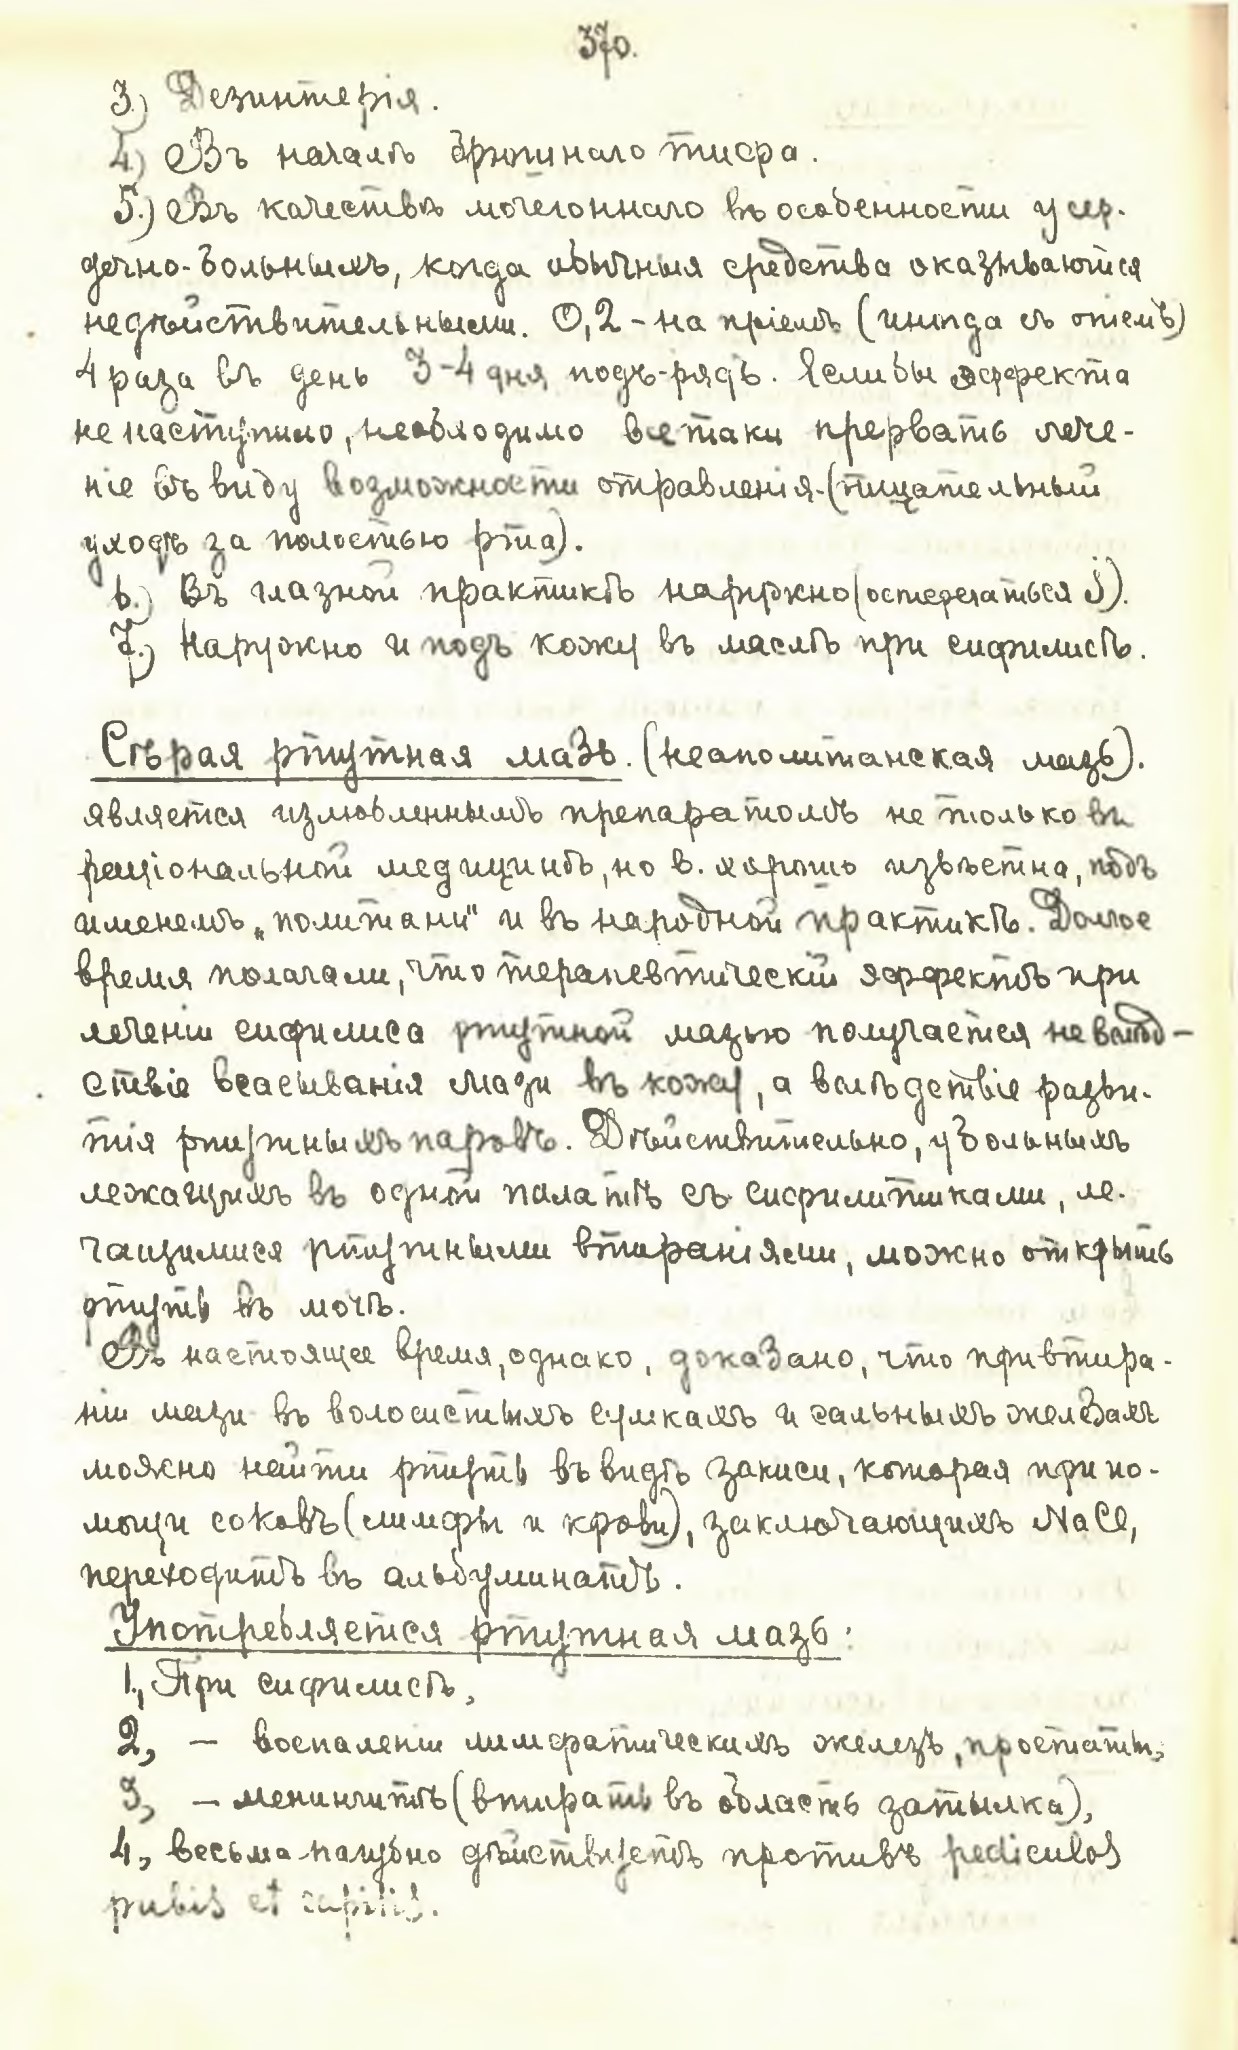 370.
3.) Дезинтерія.
4.) Въ началѣ брюшнаго тифа.
5.) Въ качествѣ мочегоннаго въ особенности у сер-
дечно-больныхъ, когда обычныя средства оказываются
недѣйствительными. 0,2 – на пріемъ (иногда съ опіемъ)
4 раза въ день 3-4 дня подъ-рядъ. Если бы эффекта
не наступило, необходимо все таки прервать лече-
ніе въ виду возможности отравленія. (тщательный
уходъ за полостью рта).
6.) Въ глазной практикѣ наружно (остерегаться j).
7.) Наружно и подъ кожу въ маслѣ при сифилисѣ.
Сѣрая ртутная мазь. (неаполитанская мазь).
является излюбленнымъ препаратомъ не только въ
раціональной медицинѣ, но в. хорошо извѣстна, подъ
именемъ „политани" и въ народной практикѣ. Долгое
время полагали, что терапевтическій эффектъ при
леченіи сифилиса ртутной мазью получается не вслѣд-
ствіе всасыванія мази въ кожу, а вслѣдствіе разви-
тія ртутныхъ паровъ. Дѣйствительно, у больныхъ
лежащихъ въ одной палатѣ съ сифилитиками, ле-
чащимися ртутными втираніями, можно открыть
ртуть въ мочѣ.
Въ настоящее время, однако, доказано, что при втира-
ніи мази въ волосистыхъ сумкахъ и сальныхъ железахъ
можно найти ртуть въ видѣ закиси, которая при по-
мощи соковъ (лимфы и крови), заключающихъ NaCl,
переходитъ въ альбуминатъ.
Употребляется ртутная мазь:
1., При сифилисѣ,
2, – воспаленіи лимфатическихъ железъ, простаты,
3, – менингитѣ (втирать въ область затылка),
4, весьма пагубно дѣйствуетъ противъ pediculos
pubis et capitis.